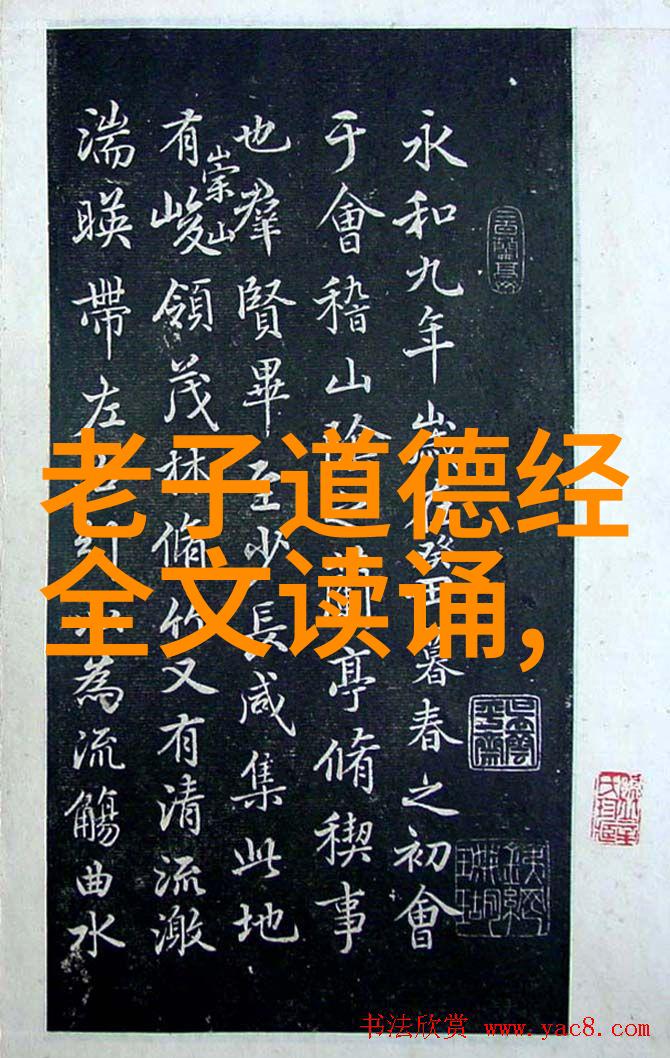 永和九年歲在癸丑暮春之初會
于會稽山陰之蘭亭脩稧事
也羣賢畢至少長咸集此地
有崇山峻領茂林脩竹又有清流激
湍暎帶左為流觴曲水
老子道德经
全文读诵,
书法欣赏 www.yac8.com